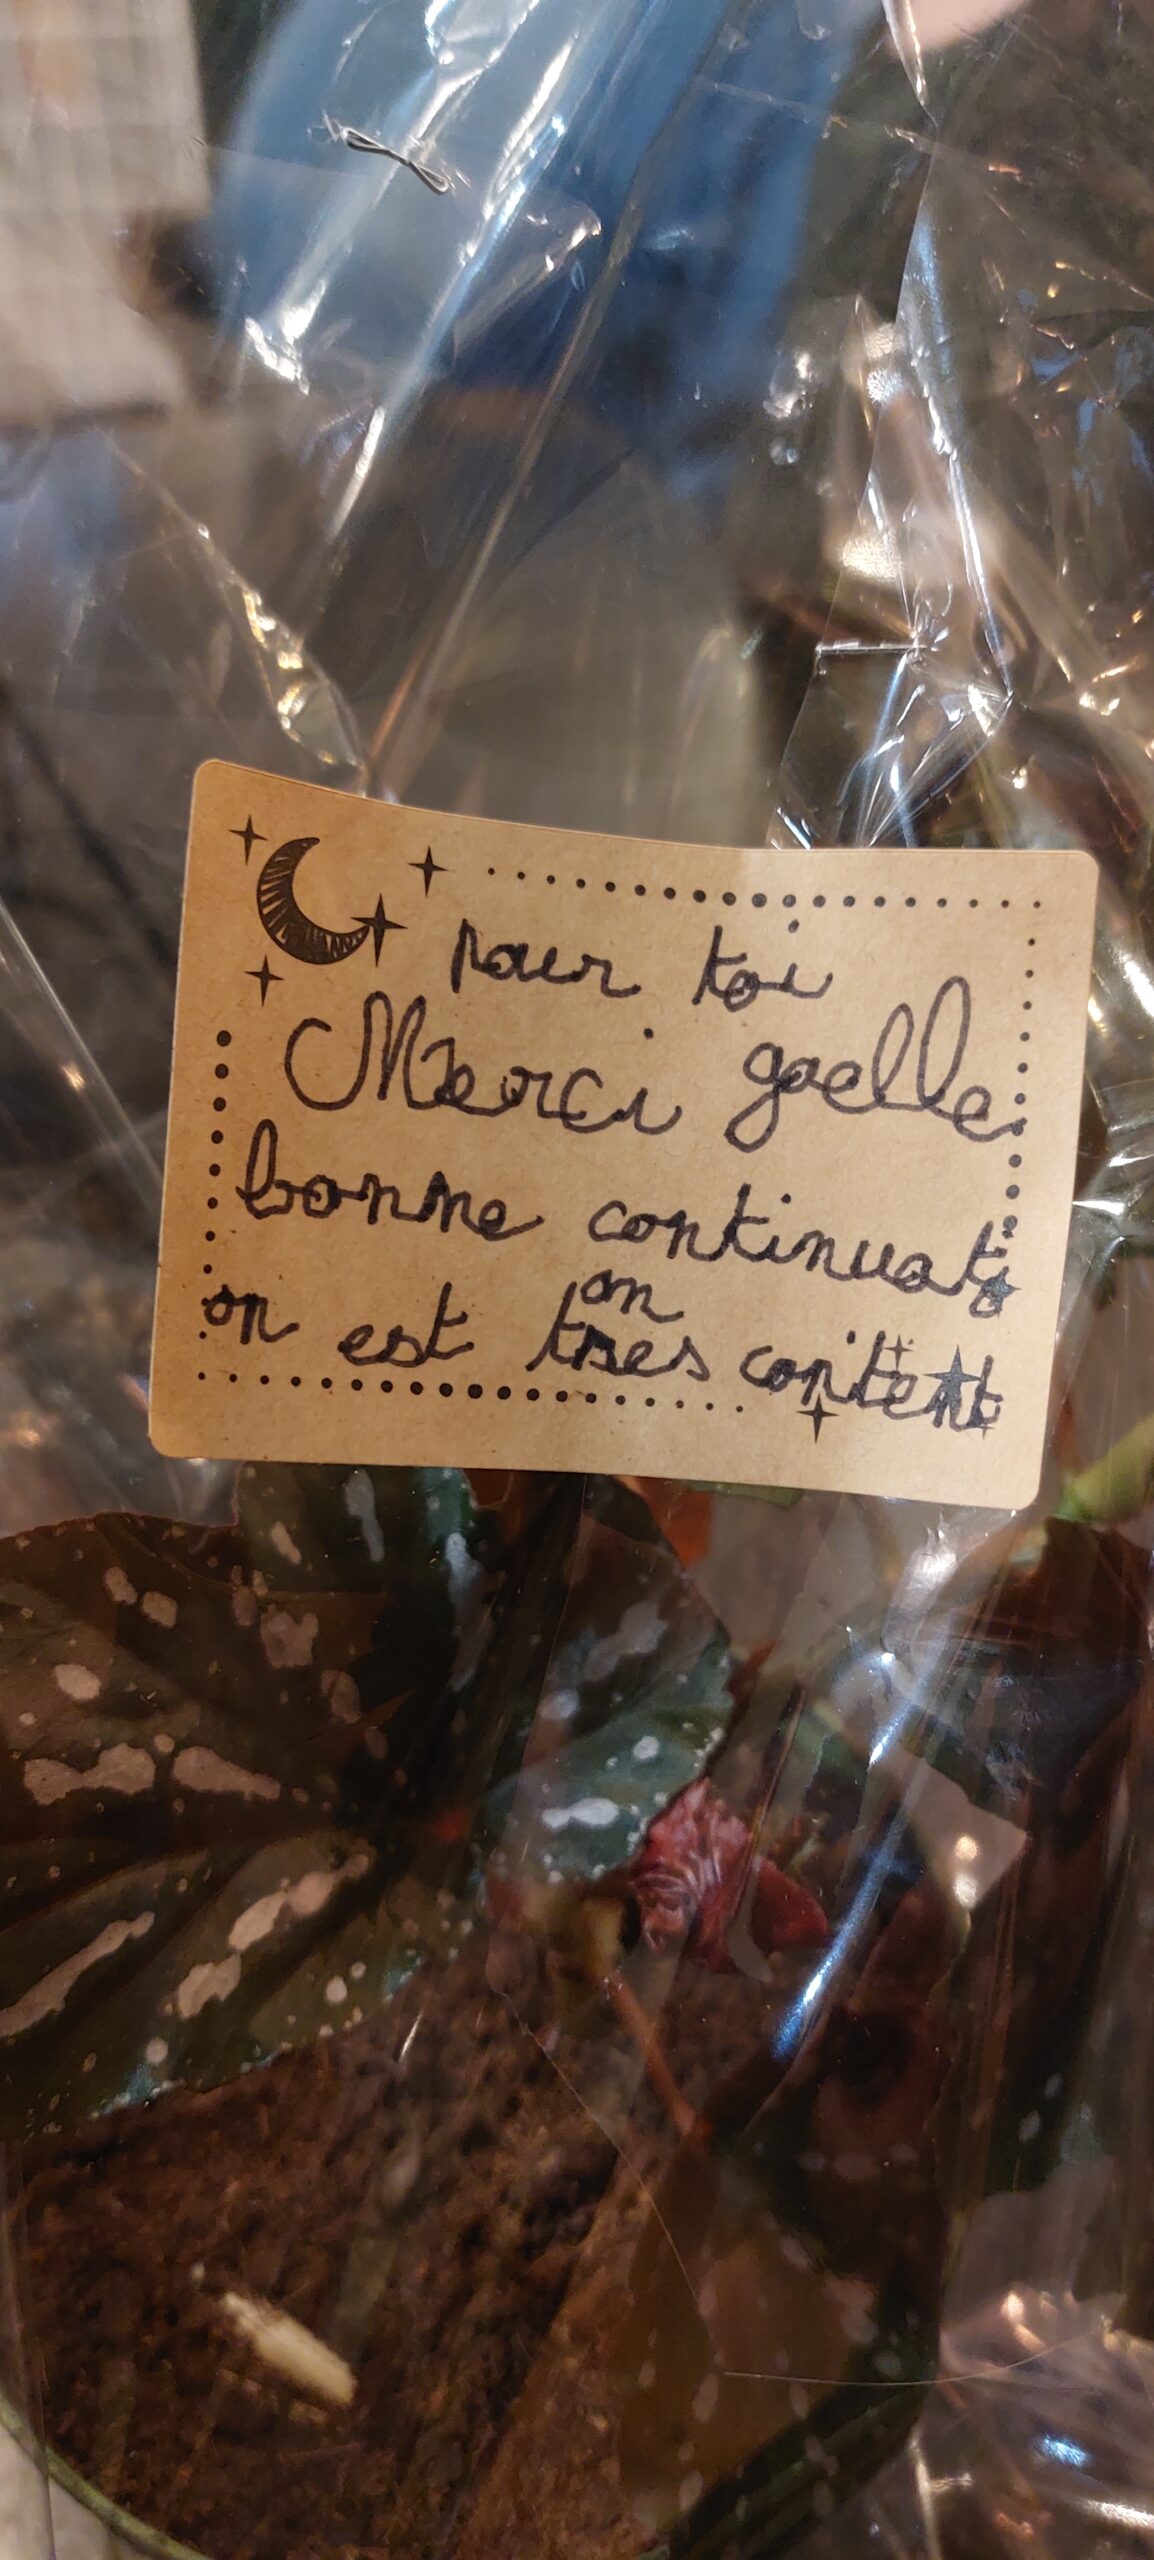 pour toi
Merci gaelle
bonne continuati
on
on est tres content